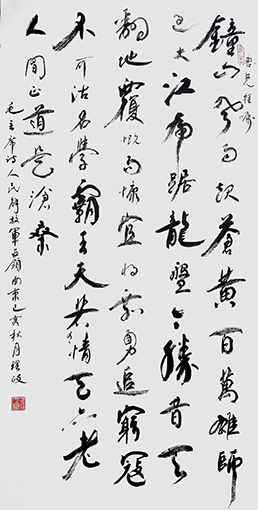 鐘山风雨起蒼黄百萬雄師
过大江虎踞龍盤今勝昔天
翻地覆慨而慷宜将剩勇追窮寇
不可沽名學霸王天若有情天亦老
人间正道是滄桑
毛主席诗人民解放軍占領南京己亥秋月